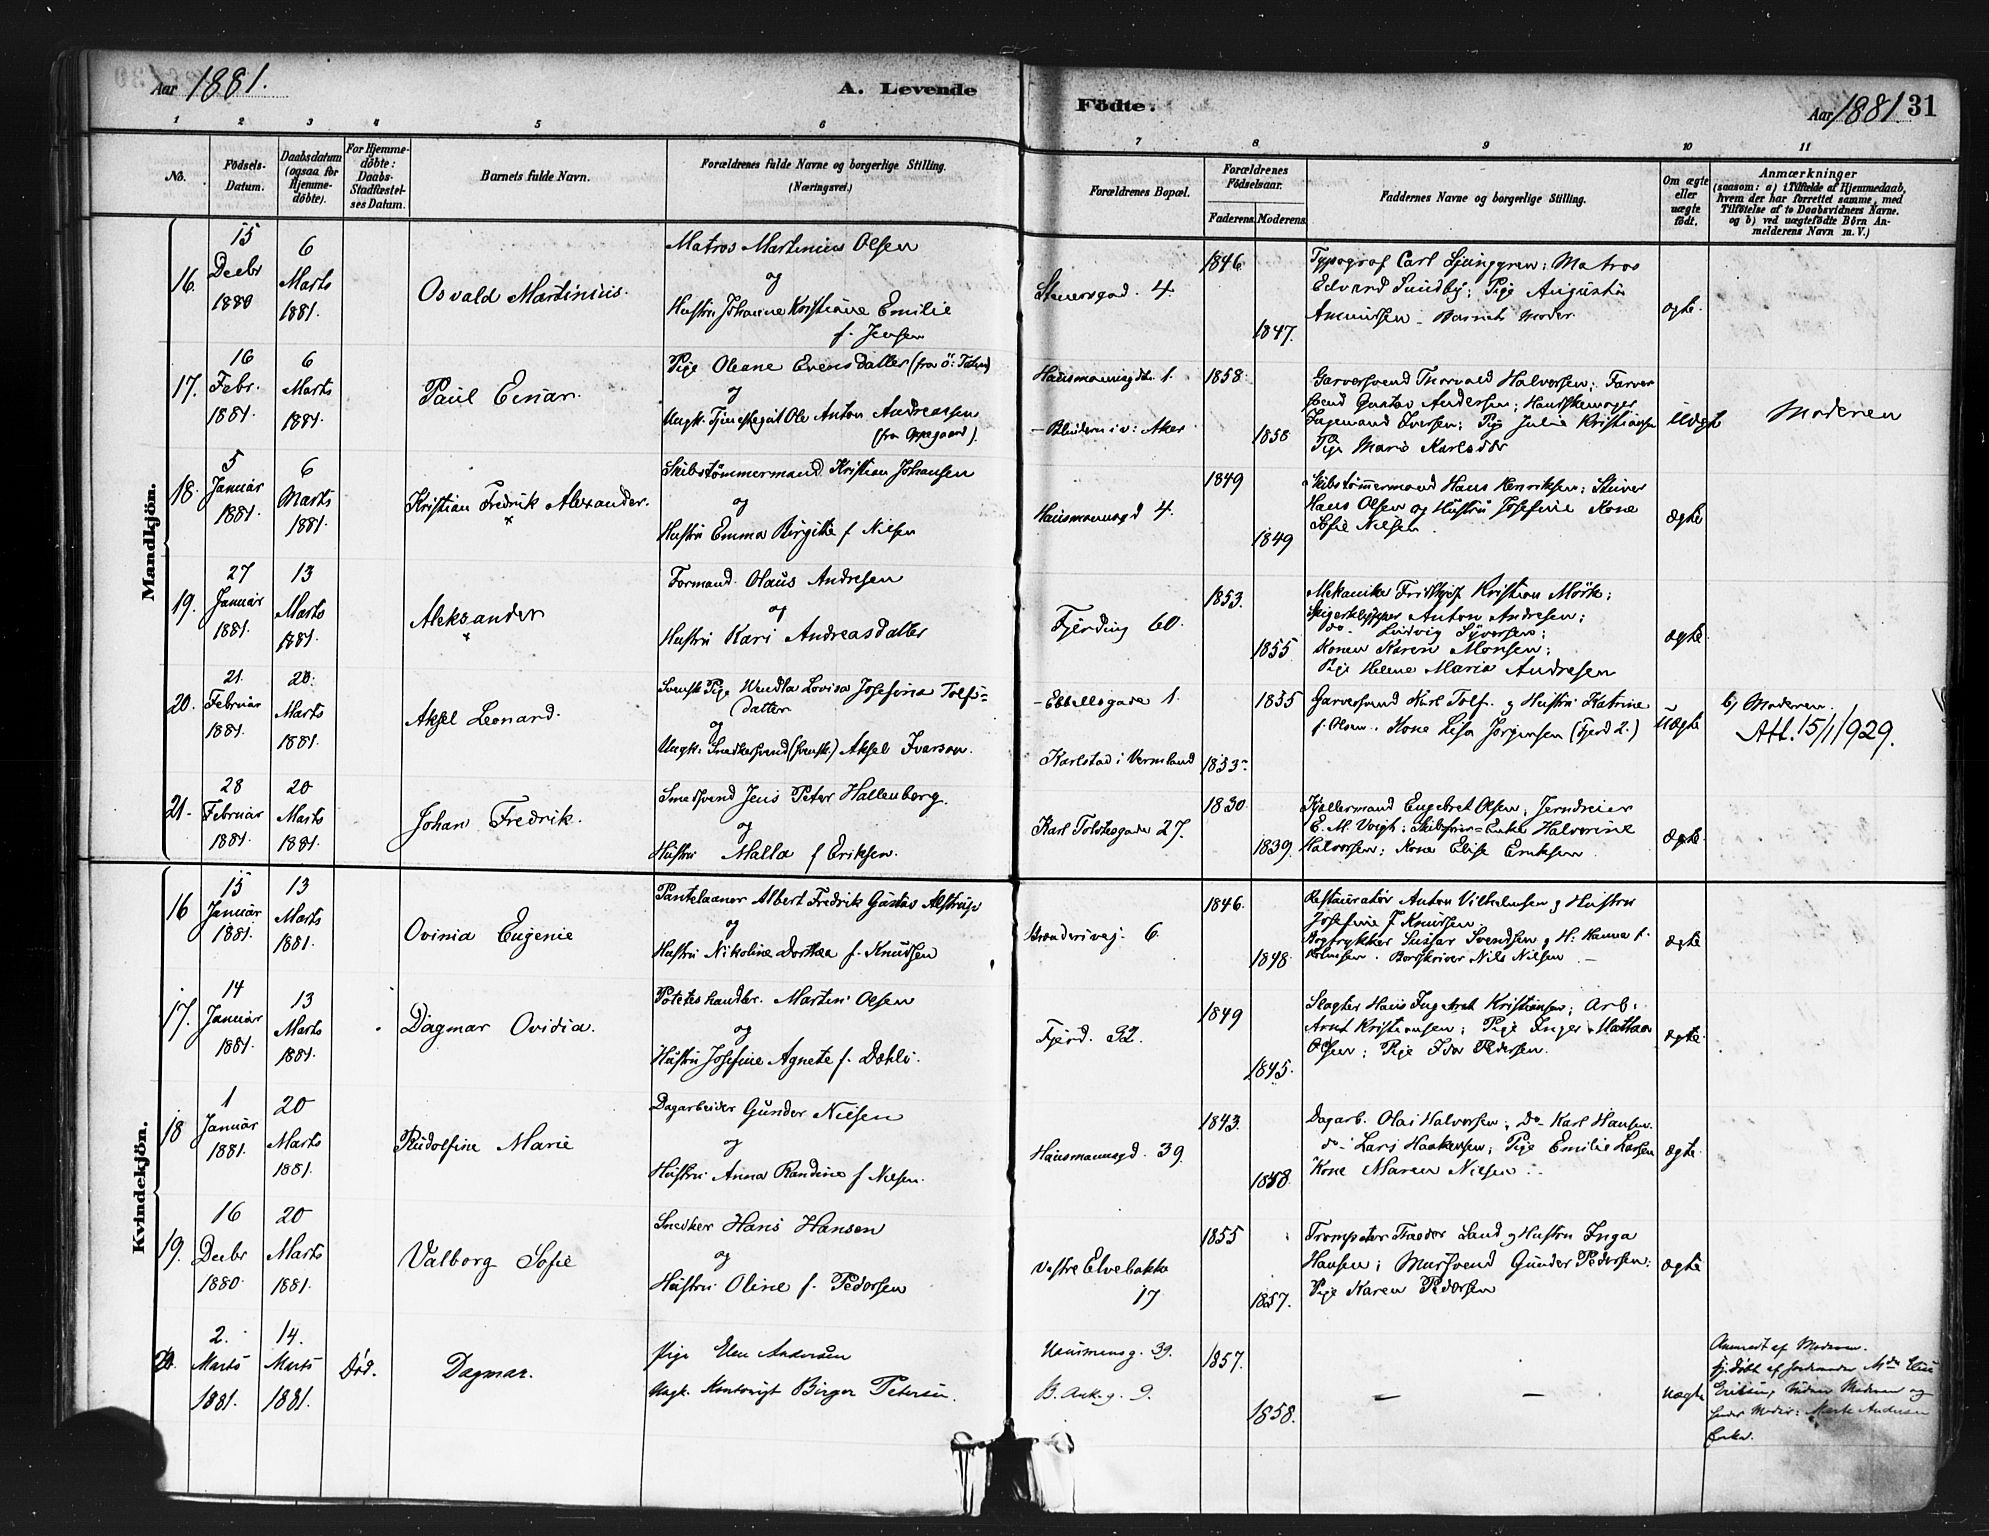 Aar 1881.
A. Levende
Födte.
Aar 1881. 31
1 2 3 4 5 6 7 8 9 10 11
No.
Födsels-Datum.
Daabsdatum (ogsaa for Hjemme-döbte).
For Hjemme-döbte: Daabs-Stadfæstel-ses Datum.
Barnets fulde Navn.
Forældrenes fulde Navne og borgerlige Stilling.
(Næringsvei.)
Forældrenes Bopæl.
Forældrenes Födselsaar.
Faderens. Moderens.
Faddernes Navne og borgerlige Stilling.
Om ægte eller uægte födt.
Anmærkninger
(saasom: a) i Tilfælde af Hjemmedaab,
hvem der har forrettet samme, med
Tilföielse af to Daabsvidners Navne.
og b) ved uægtefödte Börn An-
melderens Navn m. V.)
Mandkjön.
16.
15 Decbr 1880
6 Marts 1881.
Osvald Martinius.
Matros Martinius Olsen
og
Hustru Johanne Kristiane Emilie
f. Jensen
Stenersgad. 4.
1846.
1847.
Typograf Carl Ljunggren; Matros
Edvard Sundby; Pige Augusta
Amundsen - Barnets Moder
ægte.
17.
16 Febr. 1881.
6 Marts 1881.
Paul Einar.
Pige Oleane Evensdatter
og
Ungk. Ole Anton Andreassen
(fra Oppegaard).
Hausmannsgd. 1.
Aker
1858.
1858
Garversvend Thorvald Halvorsen; Farver
svend Gustav Andersen; Handskemager
Ingemand Iversen; Pige Julie Kristiansen
Pige Marie Karlsdtr
Uægte
Moderen
18.
5 Januar 1881.
6 Marts 1881.
Kristian Fredrik Alexander.
Skibstömmermand Kristian Johansen
og
Hustru Emma Birgitte f. Nilsen
Hausmannsgd 4.
1849
1849
Skibstömmermand Hans Henriksen; Stuver
Hans Olsen og Hustru Josefine Kone
Sofie Nilsen.
Ægte
19.
27 Januar 1881.
13 Marts 1881.
Aleksander
Formand. Olaus Andresen
og
Hustru Kari Andreasdatter
Fjerding 60.
1853.
1855
Mekaniker Fridthjof Kristian Mörk;
Anton Andresen;
do. Ludvig Syversen;
Konen Karen Monsen;
Pige Helene Maria Andresen
ægte.
20.
21. Februar 1881.
20. Marts 1881.
Aksel Leonard.
Svensk Pige Wendla Lovisa Josefina Tolfs-
datter
og
Ungk: Snedkersvend (svensk.) Aksel Ivarson.
- Ebbellsgade 1
Karlstad i Vermland
1855
1853
Garversvend Karl Tolf. og Hustru Katrine
f. Olsen. Kone Lisa Jorgensen (Fjerd 2.)
Uægte
b) Moderen.
Att. 15/1 1929.
21.
28 Februar 1881.
20 Marts 1881.
Johan Fredrik.
Smedsvend Jens Peter Hallenberg.
og
Hustru Malla f Eriksen.
Karl Tolstes gade 27.
1830.
1839.
Kjellermand Engebret Olsen; Jerndreier
E. M. Voigt; Enke Halvorine
Halvorsen; Kone Elise Eriksen.
ægte
Kvindekjön.
16
15 Januar 1881.
13 Marts 1881.
Ovinia Eugenie
Pantelaaner Albert Fredrik Gustav Alstrup
og
Hustru Nikoline Dorthea f. Knudsen
6.
1846.
1848.
Restauratör Anton Vilhelmsen og Hustru
Josefine f Knudsen.
Bogtrykker Svendsen og H: Hanna f.
Nils Nilsen.
ægte
17.
14 Januar 1881.
13 Marts 1881.
Dagmar Ovidia.
Poteteshandler. Martin Olsen
og
Hustru Josefine Agnete f. Dæhli.
Fjerd. 32.
1849
1845.
Slagter Hans Ingebret Kristiansen; Arb.
Arnt Kristiansen; Pige Inger Mathea
Olsen; Pige Ida Pedersen.
ægte
18
1 Januar 1881.
20 Marts 1881.
Rudolfine Marie
Dagarbeider Gunder Nilsen
og
Hustru Anna Randine f Nilsen.
Hausmannsgd. 39.
1843.
1858.
Dagarb. Olai Halvorsen; Do- Karl Hansen.
do- Lars Haakensen; Pige Emilie Larsen
Kone Maren Nilsen.
ægte.
19.
16 Decbr 1880
20 Marts 1881.
Valborg Sofie
Snedker Hans Hansen
og
Hustru Oline f. Pedersen
Vestre Elvebakke
17
1855
1857.
Trompeter Sand og Hustru Inga
Hansen; Mursvend Gunder Pedersen;
Pige Karen Pedersen
ægte
20.
2. Marts 1881.
14. Marts 1881.
Död.
Dagmar.
Pige Elen Andersen
Ungk. Birger Petersen.
39.
9.
1857.
1858.
—
—
uægte
Anmeldt af Moderen.
hj.döbt af Jordmoder
Eriksen, Moderen og
Moder: Andersen